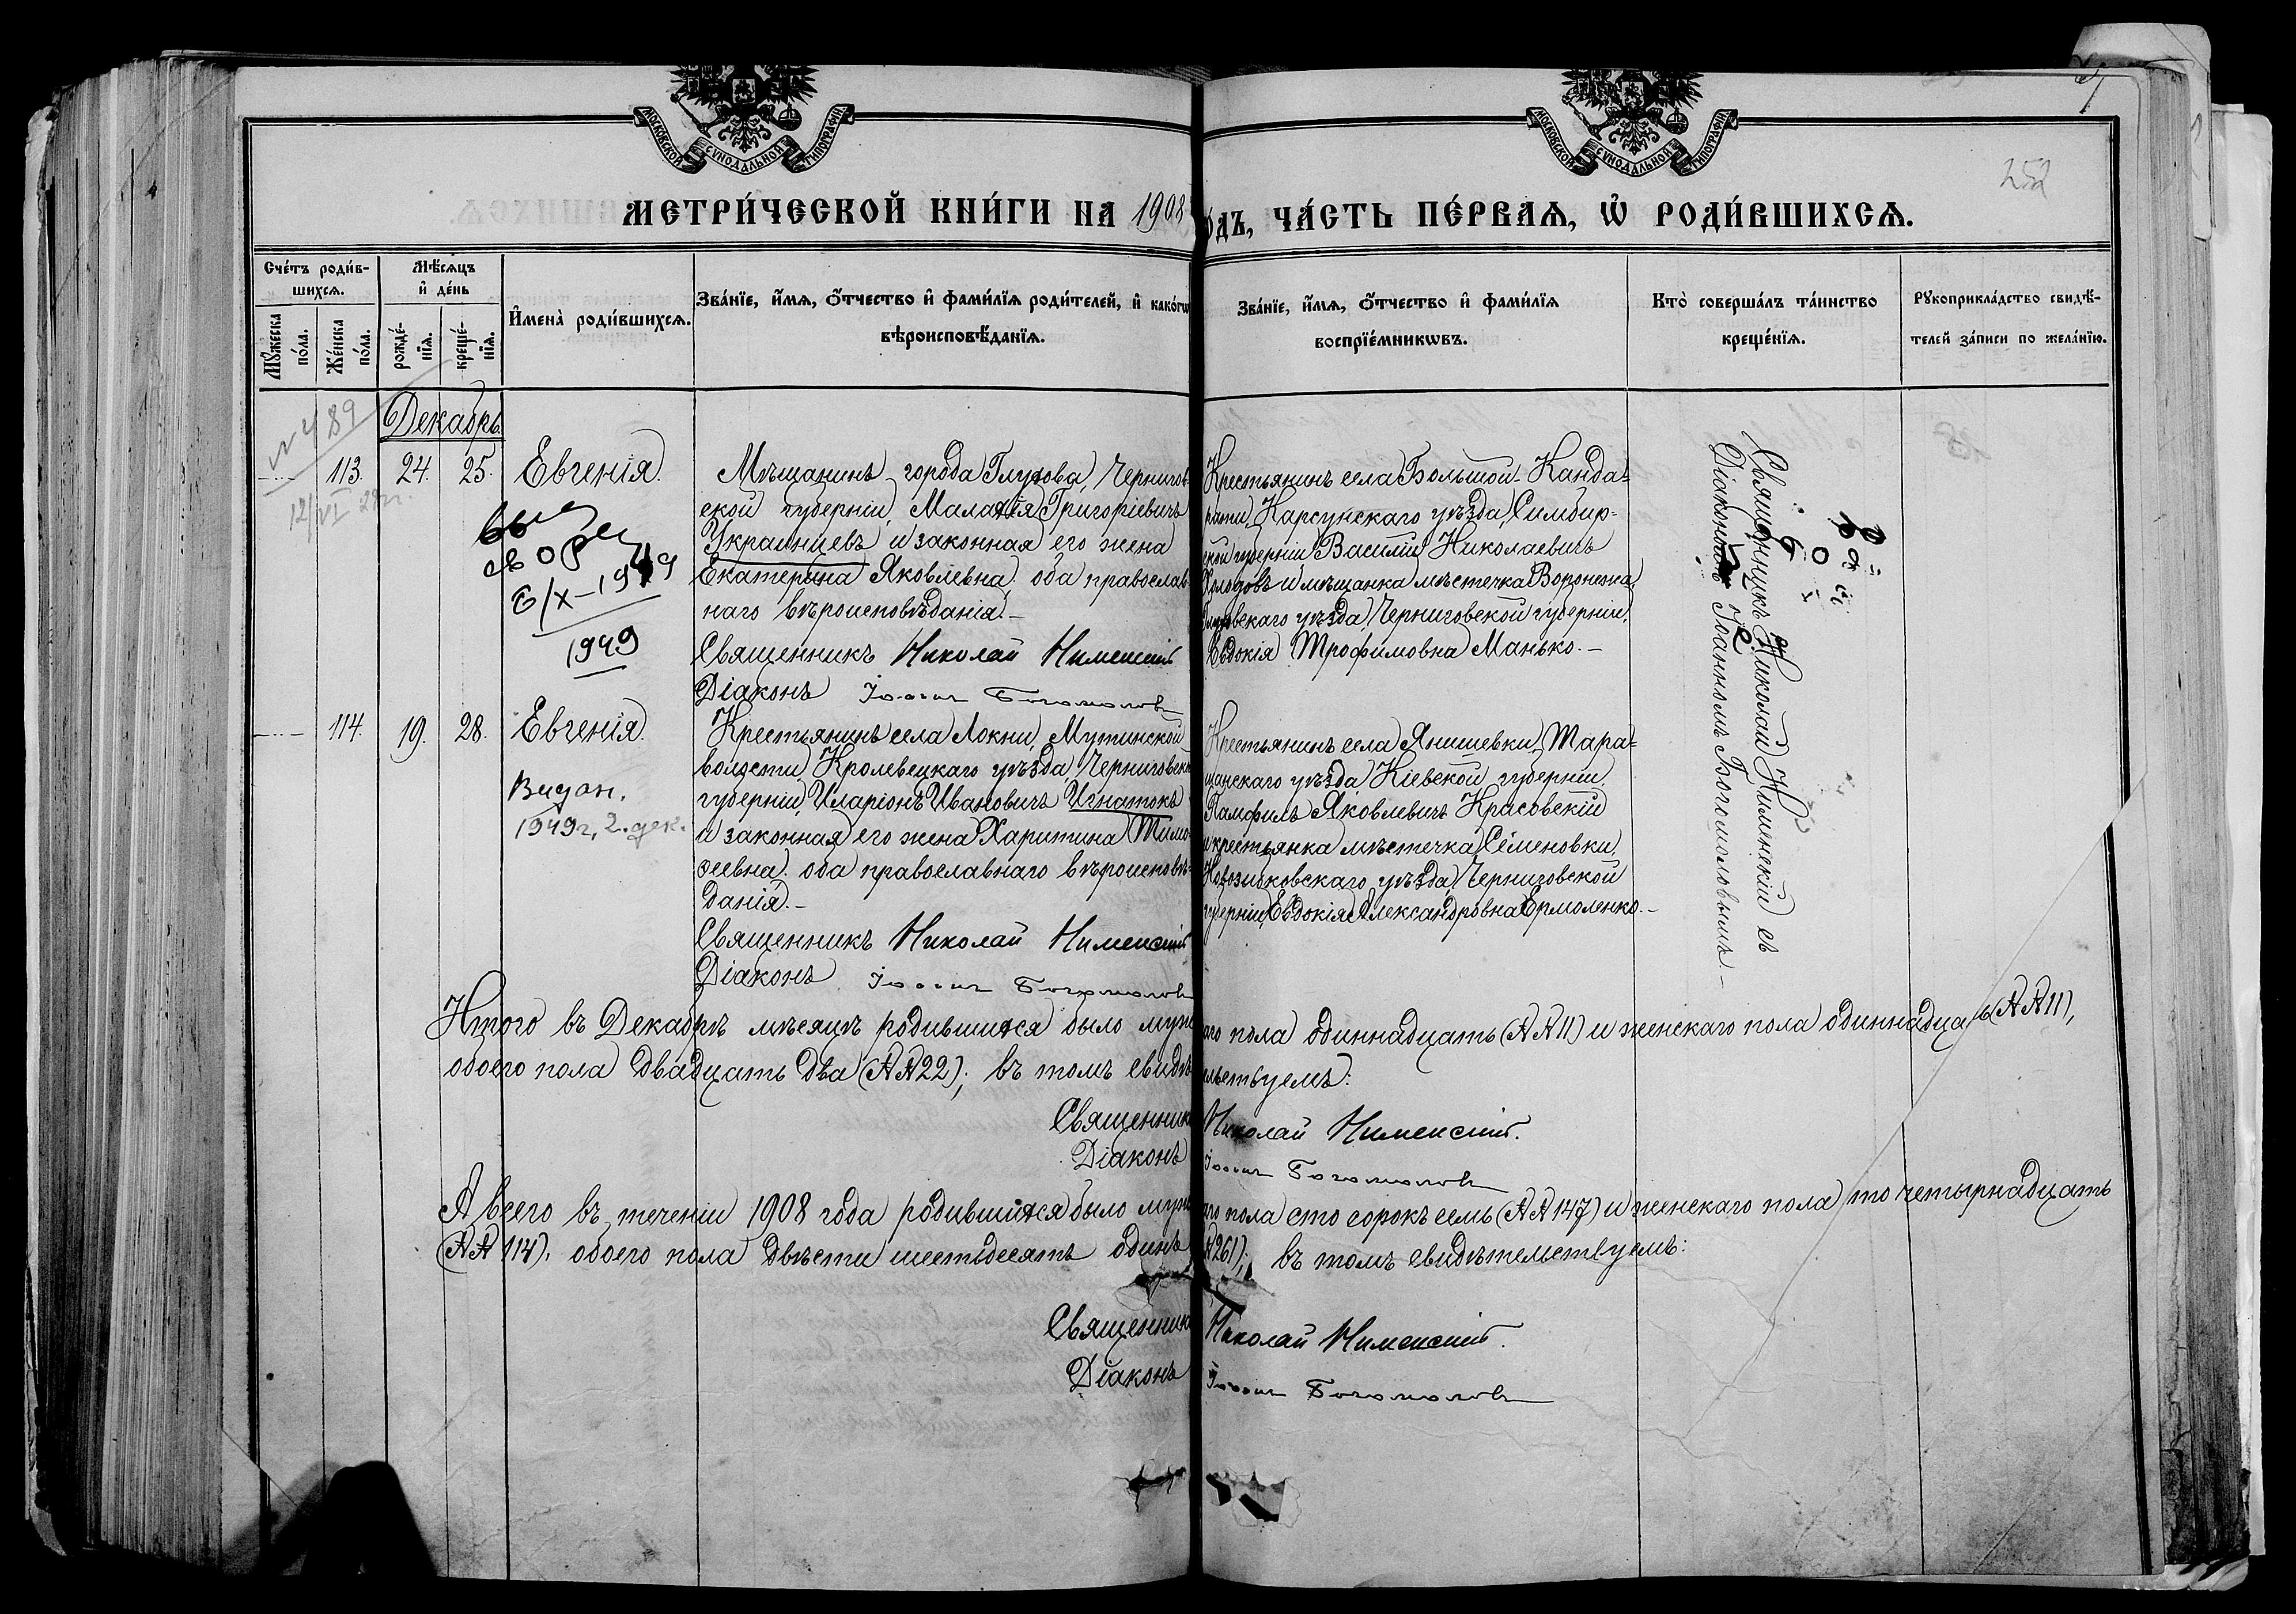 МОСКОВСКОЙ СѴНОДАЛЬНОЙ ТИПОГРАФІИ
МОСКОВСКОЙ СѴНОДАЛЬНОЙ ТИПОГРАФІИ
252
МЕТРИ́ЧЕСКОЙ КНИ́ГИ НА 1908
ОДЪ, ЧА́СТЬ ПЕ́РВАѦ, Ѡ҆ РОДИ́ВШИХСѦ.
Сче́тъ роди́в-
шихсѧ.
Мꙋ́жеска по́ла.
Же́нска по́ла.
Мѣ́сѧцъ
и҆ де́нь
рожде́-
нїѧ.
креще́-
нїѧ.
И҆мена̀ роди́вшихсѧ.
Зва́нїе, и҆́мѧ, ѻ҆́тчество и҆ фами́лїѧ роди́телей, и҆ како́гѡ
вѣроисповѣ́данїѧ.
Зва́нїе, и҆́мѧ, ѻ҆́тчество и҆ фами́лїѧ
воспрїе́мникѡвъ.
Кто̀ соверша́лъ та́инство
креще́нїѧ.
Рꙋкоприкла́дство свидѣ́-
телей за́писи по жела́нїю.
N 489
12/VI
Декабрь
113. 24. 25. Евгенія.
6/X-1949
1949
Мѣщанинъ города Глухова, Чернигов-
ской губерніи, Малахія Григоріевичъ
Украинцевъ и законная его жена
Екатерина Яковлевна, оба православ-
наго вѣроисповѣданія.-
Священникъ Николай Нименскій
Діаконъ Іоаннъ Богомоловъ
Крестьянинъ села Большой Канда-
рати, Карсунскаго уѣзда, Симбир-
ской губерніи Василій Николаевичъ
Холодовъ и мѣщанка мѣстечка Воронежа,
Глуховскаго уѣзда, Черниговской губерніи,
Евдокія Трофимовна Манько.-
Священникъ Николай Нименскій съ
Діакономъ Іоанномъ Богомоловымъ.-
114. 19. 28. Евгенія.
Видан.
1949г, 2. дек.
Крестьянинъ села Локни, Мутинской
волости, Кролевецкаго уѣзда, Черниговской
губерніи, Иларіонъ Ивановичъ Игнатокъ
и законная его жена Харитина Тимо-
ѳеевна, оба православнаго вѣроисповѣ-
данія.-
Священникъ Николай Нименскій
Діаконъ Іоаннъ Богомоловъ
Крестьянинъ села Янишевки, Тара-
щанскаго уѣзда, Кіевской губерніи
Памфилъ Яковлевичъ Красовскій
и крестьянка мѣстечка Семеновки,
Новозыбковскаго уѣзда, Черниговской
губерніи, Евдокія Александровна Ермоленко.-
Итого въ Декабрѣ мѣсяцѣ родившихся было муж аго пола одиннадцать (№№ 11) и женскаго пола одиннадцать (№№ 11),
обоего пола двадцать два (№№ 22); въ томъ свидѣ тельствуемъ:
Священникъ Николай Нименскій.
Діаконъ Іоаннъ Богомоловъ
А всего въ теченіи 1908 года родившихся было муж аго пола сто сорокъ семь (№№ 147) и женскаго пола сто четырнадцать
(№№ 114), обоего пола двѣсти шестьдесятъ одинъ № 261); въ томъ свидѣтельствуемъ:
Священникъ Николай Нименскій.
Діаконъ Іоаннъ Богомоловъ